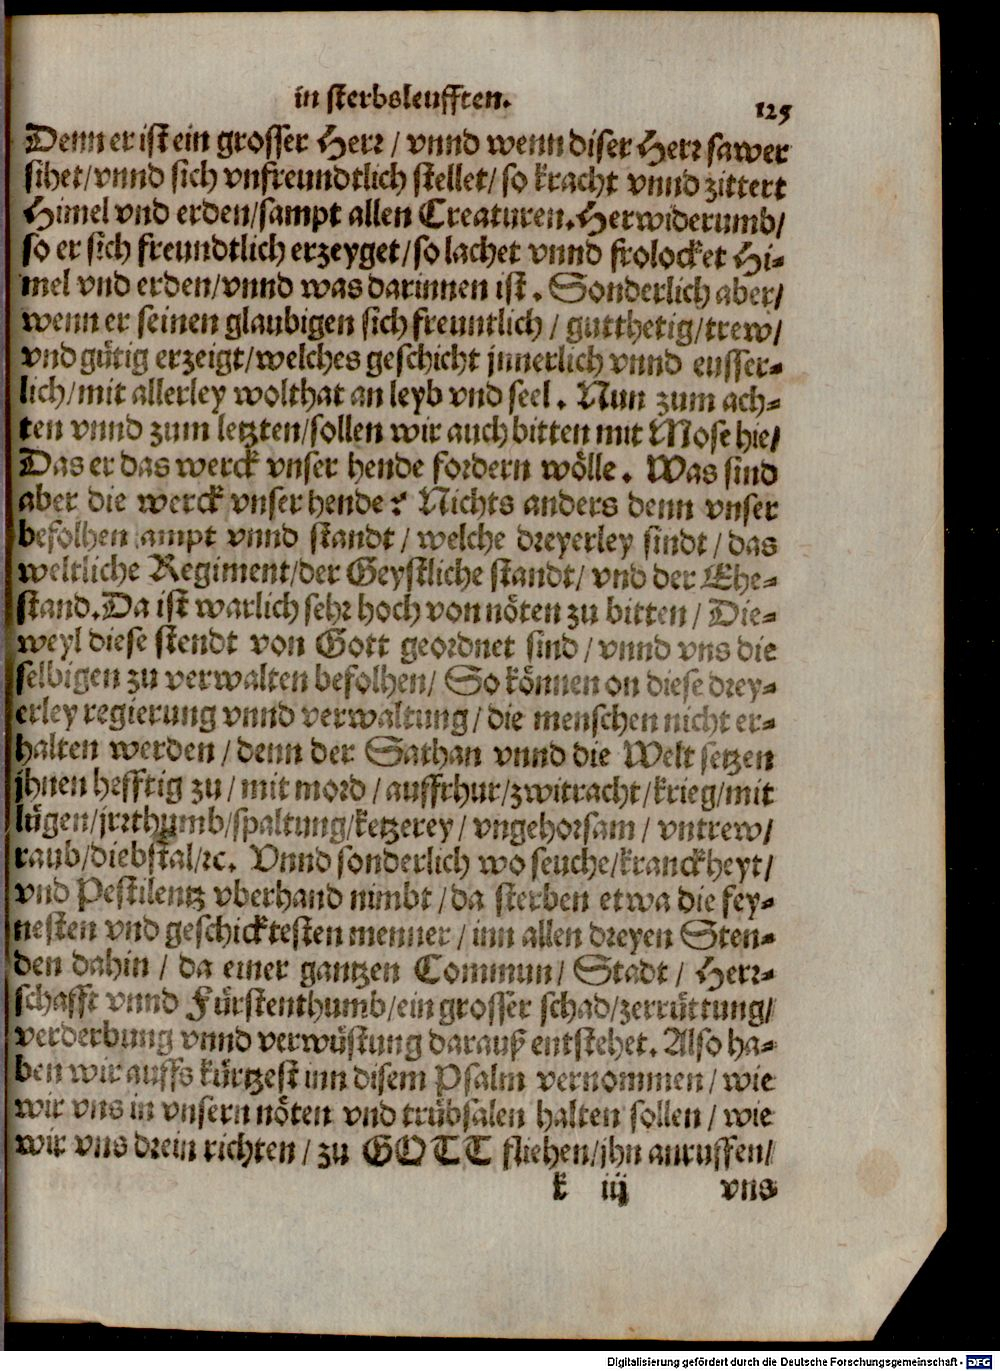 in sterbsleufften.
125
Denn er ist ein grosser Herr / vnnd wenn diser Herr sawer
sihet/vnnd sich vnfreundtlich stellet/ so kracht vnnd zittert
Himel vnd erden/sampt allen Creaturen.Herwiderumb/
so er sich freundtlich erzeyget/so lachet vnnd frolocket Hi-
mel vnd erden/vnnd was darinnen ist . Sonderlich aber/
wenn er seinen glaubigen sich freuntlich / gutthetig/trew/
vnd gütig erzeigt/welches geschicht jnnerlich vnnd eusser-
lich/mit allerley wolthat an leyb vnd seel . Nun zum ach-
ten vnnd zum letzten/sollen wir auch bitten mit Mose hie/
Das er das werck vnser hende fordern wölle . Was sind
aber die werck vnser hende? Nichts anders denn vnser
befolhen ampt vnnd standt / welche dreyerley sindt / das
weltliche Regiment/der Geystliche standt/ vnd der Ehe-
stand.Da ist warlich sehr hoch von nöten zu bitten / Die-
weyl diese stendt von Gott geordnet sind / vnnd vns die
selbigen zu verwalten befolhen/ So können on diese drey-
erley regierung vnnd verwaltung / die menschen nicht er-
halten werden / denn der Sathan vnnd die Welt setzen
jhnen hefftig zu / mit mord / auffrhur/zwitracht/krieg/mit
lügen/jrrthumb/spaltung/ketzerey / vngehorsam / vntrew/
raub/diebstal/ꝛc. Vnnd sonderlich wo seuche/kranckheyt/
vnd Pestilentz vberhand nimbt / da sterben etwa die fey-
nesten vnd geschicktesten menner / inn allen dreyen Sten-
den dahin / da einer gantzen Commun/ Stadt / Herr-
schafft vnnd Fürstenthumb/ein grosser schad/zerrüttung/
verderbung vnnd verwüstung darauß entstehet. Also ha-
ben wir auffs kürtzest inn disem Psalm vernommen / wie
wir vns in vnsern nöten vnd trübsalen halten sollen / wie
wir vns drein richten / zu GOTT fliehen/jhn anruffen/
k iij vns
Digitalisierung gefördert durch die Deutsche Forschungsgemeinschaft - DFG